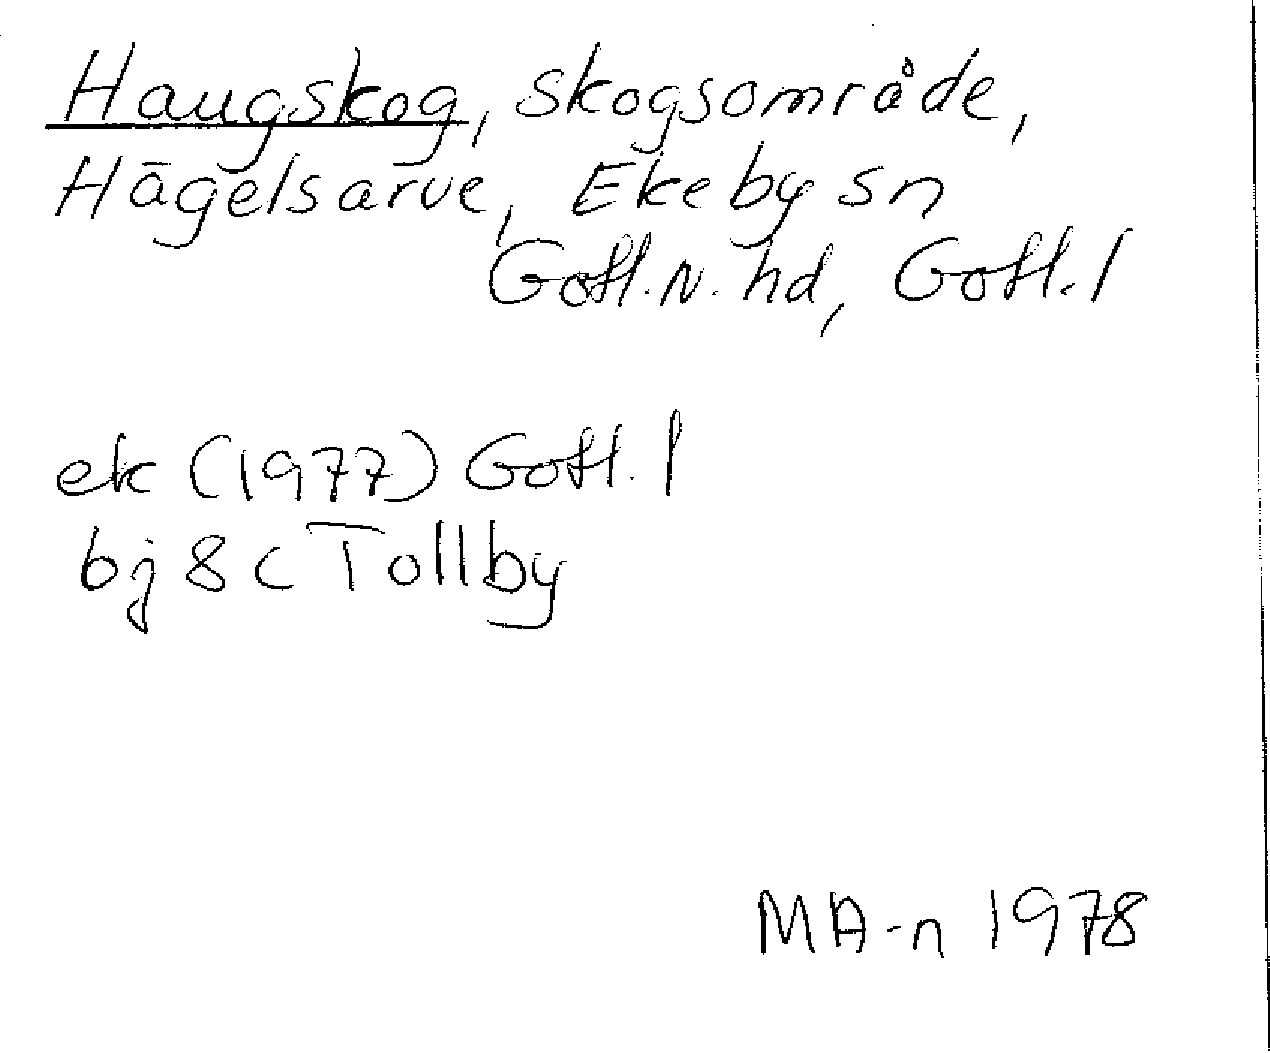 Haugskog, skogsområde,
Hägelsarve, Ekeby sn
Gotl. N. hd, Gotl. l
ek (1977) Gotl. l
bj 8 c Tollby
MA-n 1978